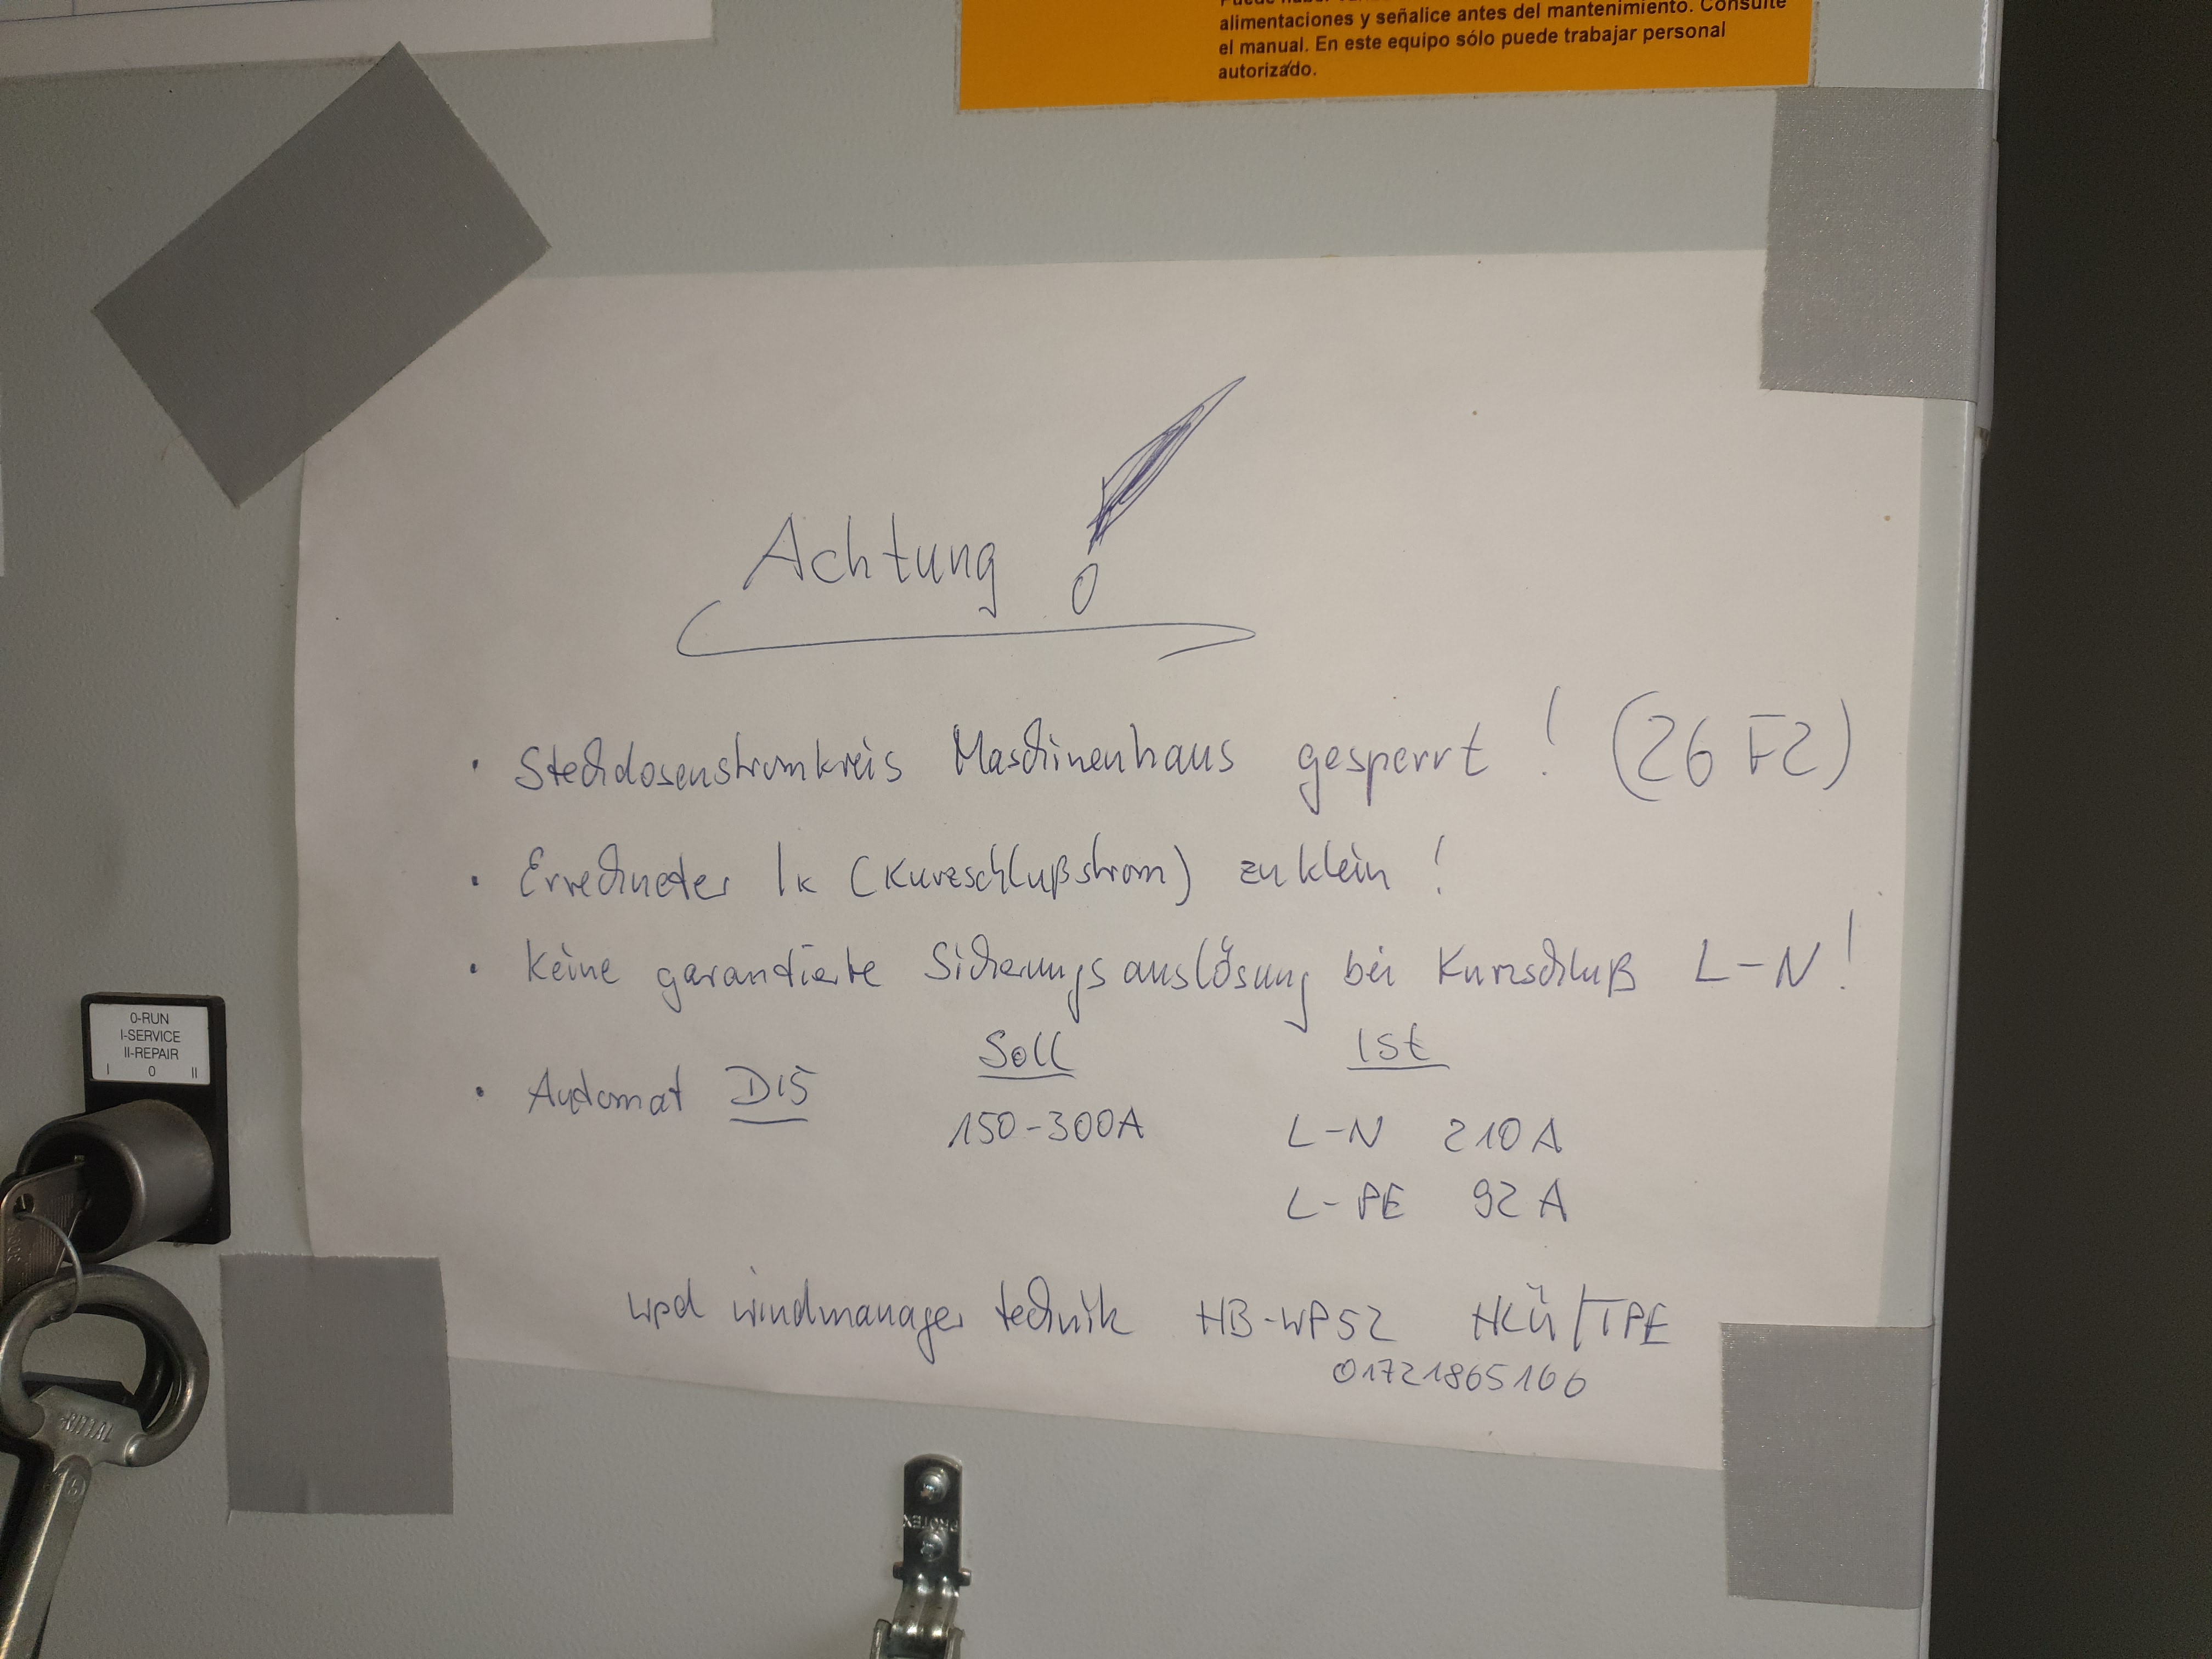 alimentaciones y señalice antes del mantenimiento. Consulte
el manual. En este equipo sólo puede trabajar personal
autorizado.
Achtung !
• Steckdosenstromkreis Maschinenhaus gesperrt ! (26 F2)
• Errechneter Ik (Kurzschlußstrom) zu klein !
• Keine garantierte Sicherungsauslösung bei Kurzschluß L-N !
Soll Ist
• Automat D15
150-300A L-N 210 A
L-PE 92 A
wpd windmanager technik HB-WP52 HKü/TPE
01721865166
0-RUN
I-SERVICE
II-REPAIR
I 0 II
RITTAL
PROTEX